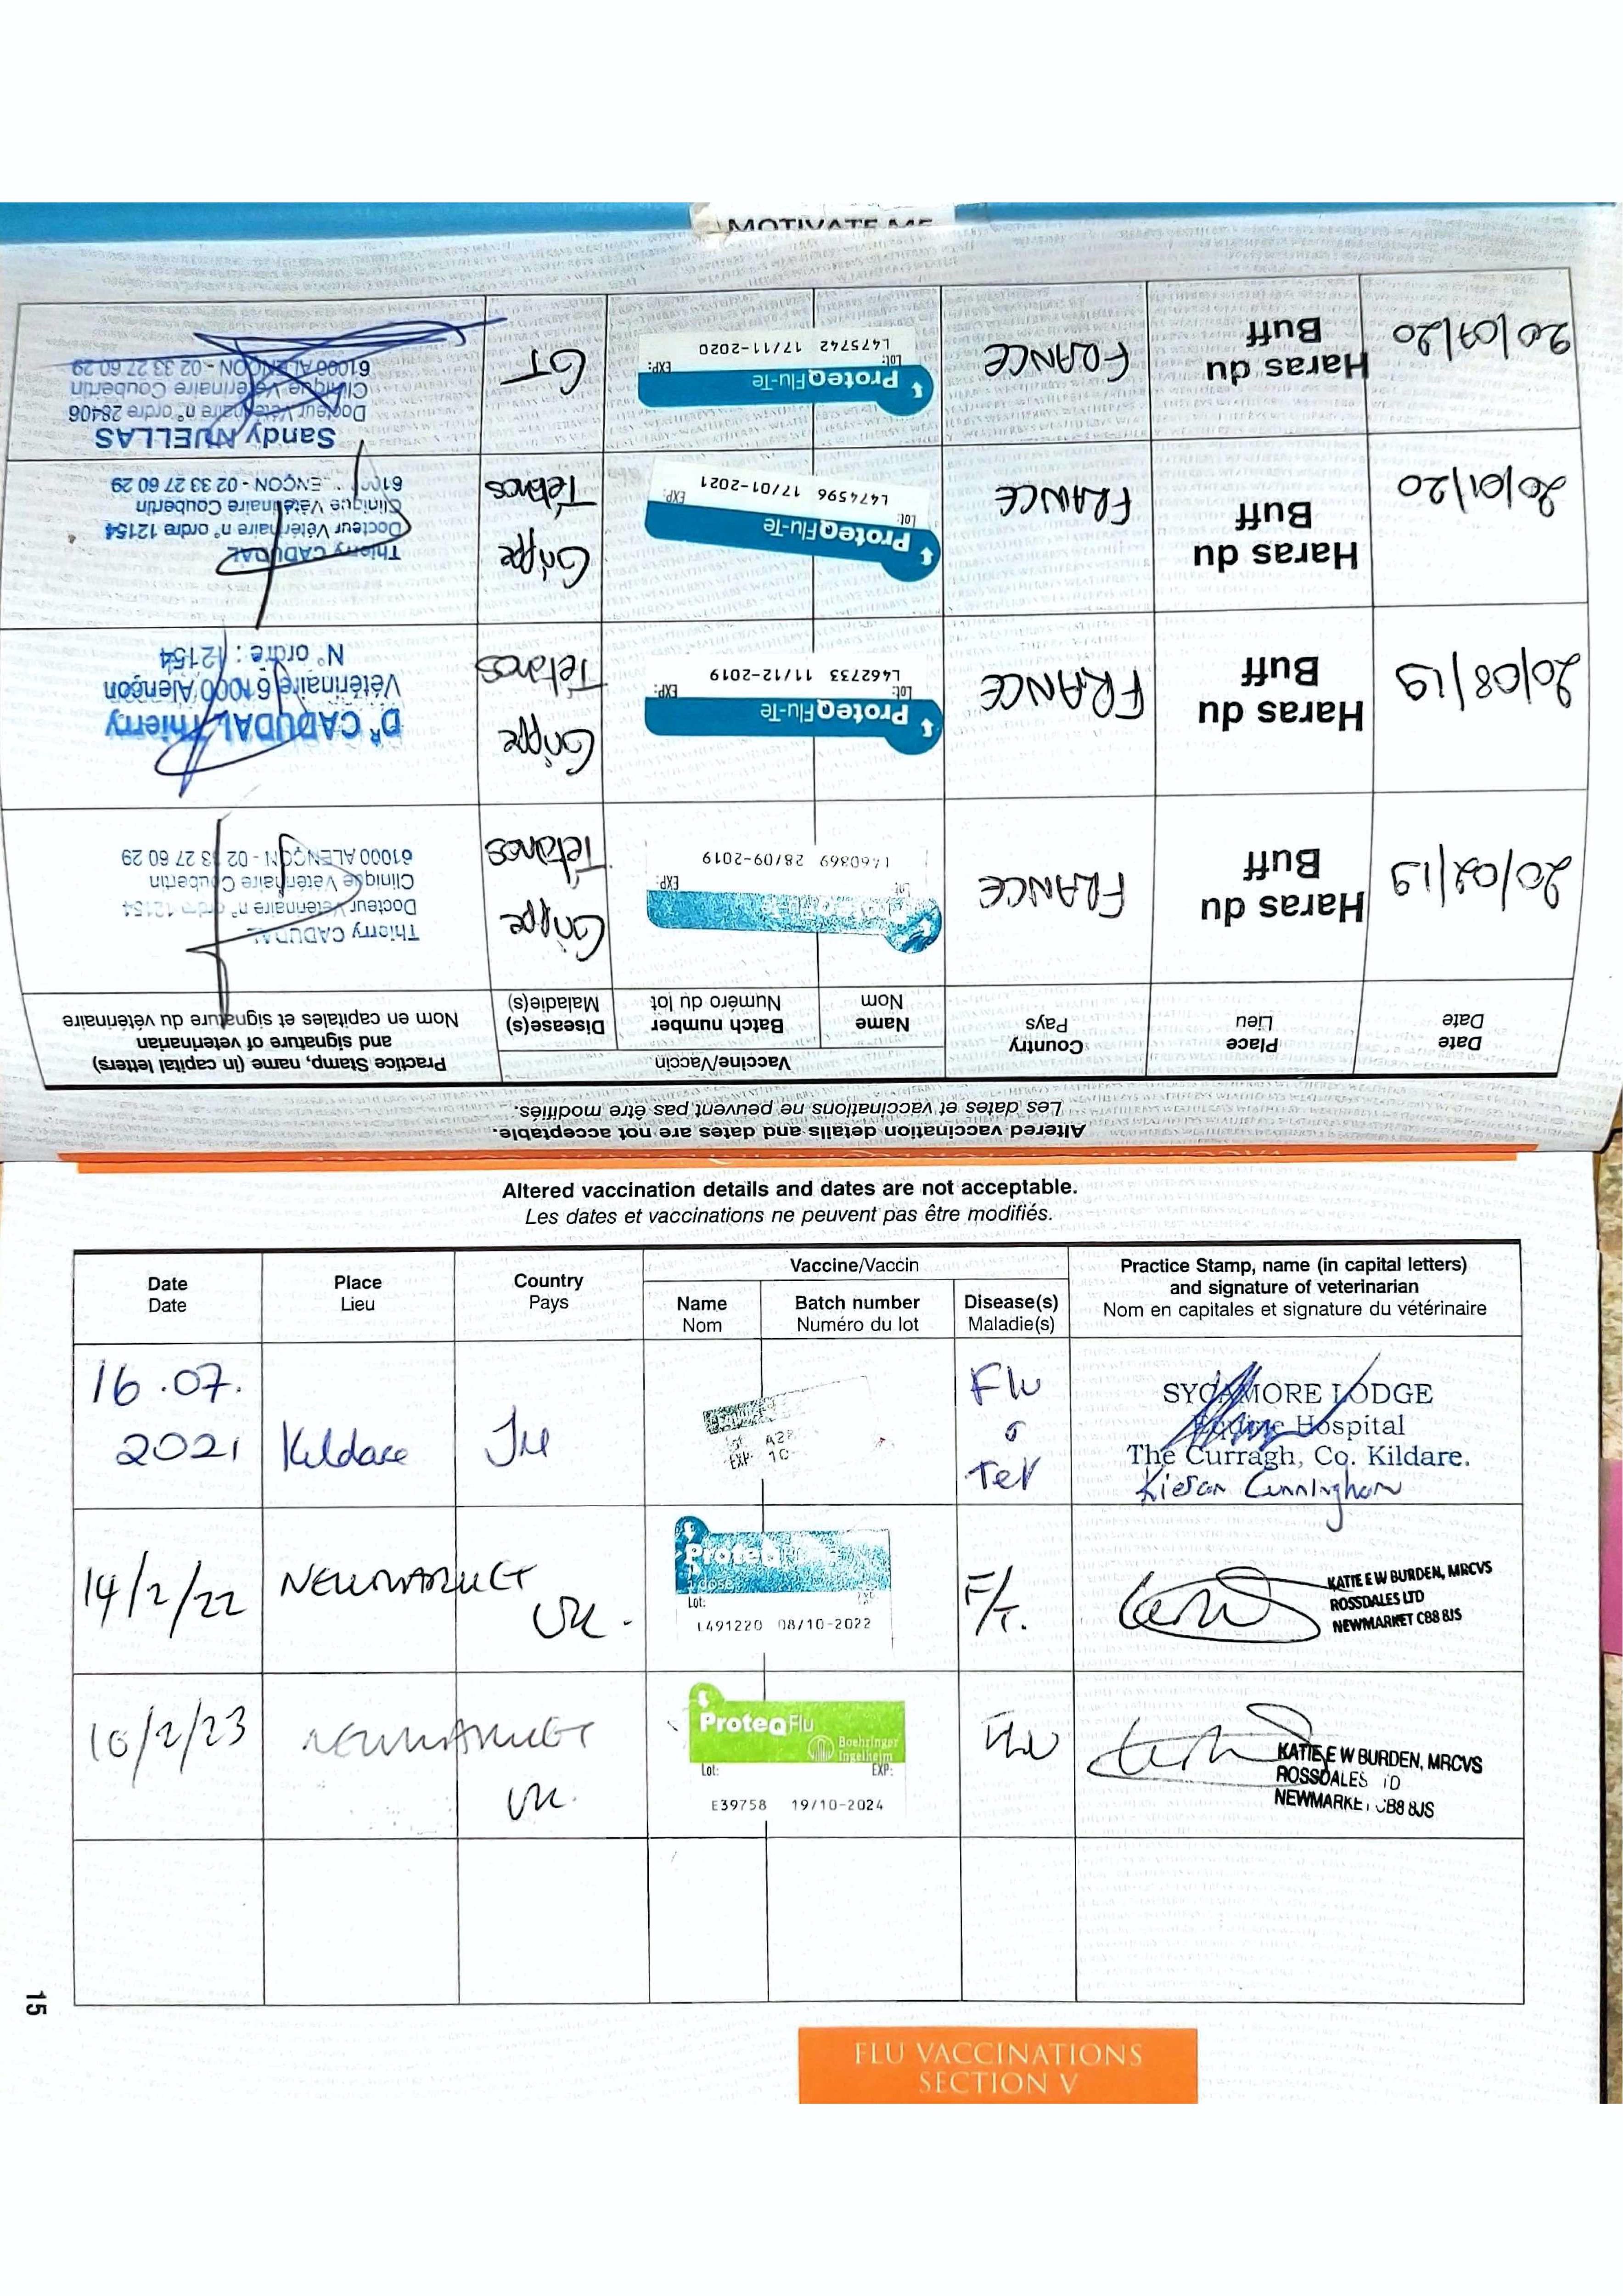 MOTIVATE ME
Altered vaccination details and dates are not acceptable.
Les dates et vaccinations ne peuvent pas être modifiés.
Date
Date
Place
Lieu
Country
Pays
Vaccine/Vaccin
Name
Nom
Batch number
Numéro du lot
Disease(s)
Maladie(s)
Practice Stamp, name (in capital letters)
and signature of veterinarian
Nom en capitales et signature du vétérinaire
20/02/19
Haras du
Buff
FRANCE
Lot: EXP:
L460869 28/09-2019
Grippe
Tétanos
Thierry CADUDAL
Docteur Vétérinaire n° ordre 12154
Clinique Vétérinaire Coubertin
61000 ALENÇON - 02 33 27 60 29
20/08/19
Haras du
Buff
FRANCE
ProteqFlu-Te
Lot: EXP:
L462733 11/12-2019
Grippe
Tétanos
DR CADUDAL Thierry
Vétérinaire 61000 Alençon
N° ordre : 12154
20/01/20
Haras du
Buff
FRANCE
ProteqFlu-Te
Lot: EXP:
L474596 17/01-2021
Grippe
Tétanos
Thierry CADUDAL
Docteur Vétérinaire n° ordre 12154
Clinique Vétérinaire Coubertin
ENÇON - 02 33 27 60 29
20/07/20
Haras du
Buff
FRANCE
ProteqFlu-Te
Lot: EXP:
L475742 17/11-2020
GT
Sandy NUELLAS
Docteur Vétérinaire n° ordre 28406
Clinique Vétérinaire Coubertin
61000 ALENÇON - 02 33 27 60 29
Altered vaccination details and dates are not acceptable.
Les dates et vaccinations ne peuvent pas être modifiés.
Date
Date
Place
Lieu
Country
Pays
Vaccine/Vaccin
Name
Nom
Batch number
Numéro du lot
Disease(s)
Maladie(s)
Practice Stamp, name (in capital letters)
and signature of veterinarian
Nom en capitales et signature du vétérinaire
16.07.
2021
Kildare
Ire
EXP: 10-
Flu
Tet
SYCAMORE LODGE
Equine Hospital
The Curragh, Co. Kildare.
Kieran Cunningham
14/2/22
NEWMARKET
UK.
Proteq
1 dose
Lot:
L491220 08/10-2022
F/T.
KATIE E W BURDEN, MRCVS
ROSSDALES LTD
NEWMARKET CB8 8JS
10/2/23
NEWMARKET
UK.
ProteqFlu
Boehringer
Ingelheim
Lot: EXP:
E39758 19/10-2024
FLU
KATIE E W BURDEN, MRCVS
ROSSDALES
NEWMARKET CB8 8JS
15
FLU VACCINATIONS
SECTION V